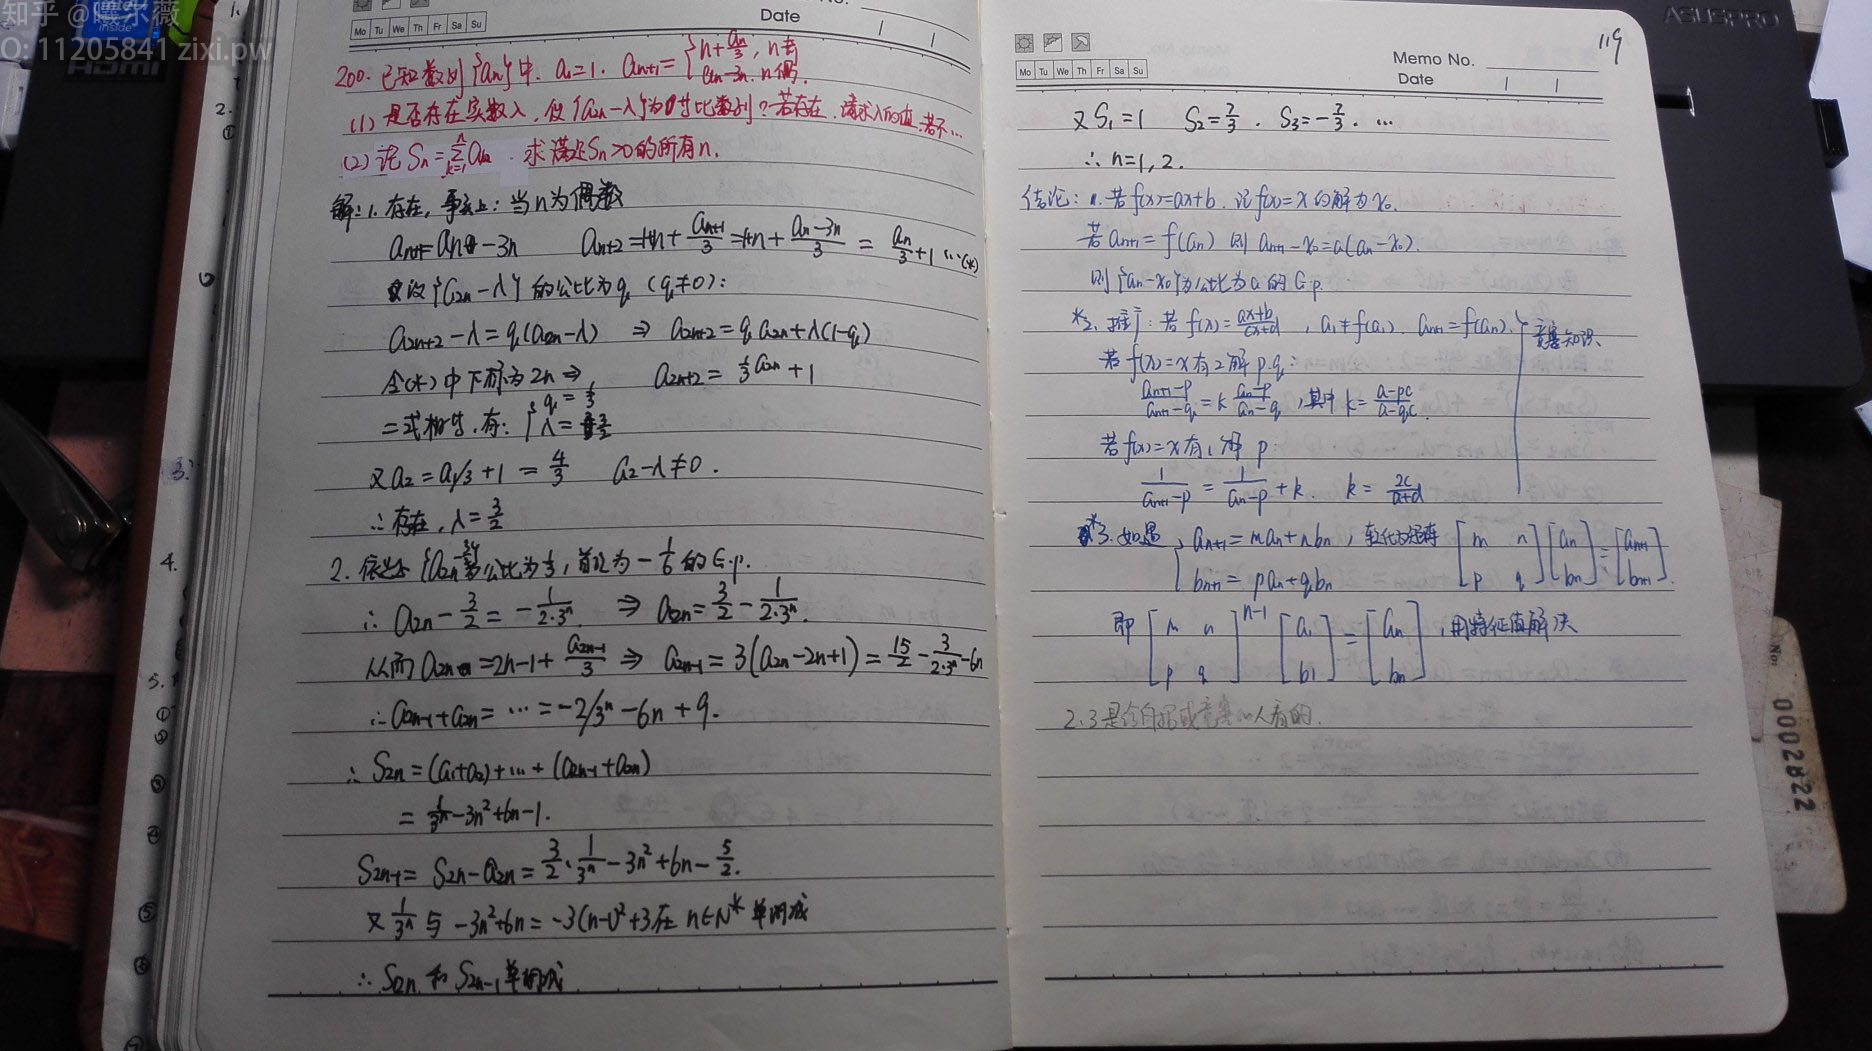 知乎 @曦尔薇
Q: 11205841 zixi.pw
HDMI
ASUSPRO
Mo Tu We Th Fr Sa Su
Date
200. 已知数列{an}中. a₁=1. an+1={n+an/3, n奇
an-3n. n偶.
(1) 是否存在实数λ, 使{a2n-λ}为等比数列?若存在.请求λ的值.若不…
(2) 记 Sn=∑ak. 求满足Sn>0的所有n.
解:1. 存在, 事实上: 当n为偶数
an+1=an-3n an+2=1+n+an+1/3=1+n+(an-3n)/3=an/3+1 …(*)
又设{a2n-λ}的公比为q (q≠0):
a2n+2-λ=q(a2n-λ) ⇒ a2n+2=q a2n+λ(1-q)
令(*)中下标为2n ⇒ a2n+2=1/3 a2n+1
二式相当.有: {q=1/3
λ=3/2
又a2=a1/3+1=4/3 a2-λ≠0.
∴存在, λ=3/2
2. {a2n-3/2}公比为1/3, 首项为-1/6的G.p.
∴ a2n-3/2=-1/(2·3ⁿ) ⇒ a2n=3/2-1/(2·3ⁿ).
从而a2n=2n-1+a2n-1/3 ⇒ a2n-1=3(a2n-2n+1)=15/2-3/(2·3ⁿ)-6n
∴a2n-1+a2n=…=-2/3ⁿ-6n+9.
∴S2n=(a1+a2)+…+(a2n-1+a2n)
=1/3ⁿ-3n²+6n-1.
S2n-1=S2n-a2n=3/2·1/3ⁿ-3n²+6n-5/2.
又1/3ⁿ与-3n²+6n=-3(n-1)²+3在n∈N*单调减
∴S2n和S2n-1单调减
119
Mo Tu We Th Fr Sa Su
Memo No.
Date
又S₁=1 S₂=7/3. S₃=-7/3. …
∴n=1,2.
结论: 1. 若f(x)=ax+b. 记f(x)=x的解为x₀.
若an+1=f(an) 则an+1-x₀=a(an-x₀).
则{an-x₀}为公比为a的G.p.
*2. 推广: 若f(x)=(ax+b)/(cx+d), a₁≠f(a₁). an+1=f(an). 竞赛知识
若f(x)=x有2解p.q:
(an+1-p)/(an+1-q)=k (an-p)/(an-q), 其中k=(a-pc)/(a-qc).
若f(x)=x有1解p
1/(an+1-p)=1/(an-p)+k. k=2c/(a+d)
*3. 如遇{an+1=man+nbn, 转化为矩阵 [m n p q][an bn]=[an+1 bn+1].
bn+1=pan+qbn
即[m n p q]ⁿ⁻¹[a₁ b₁]=[an bn], 用特征值解决
2.3是给自招或竞赛的人看的.
No:
0002822